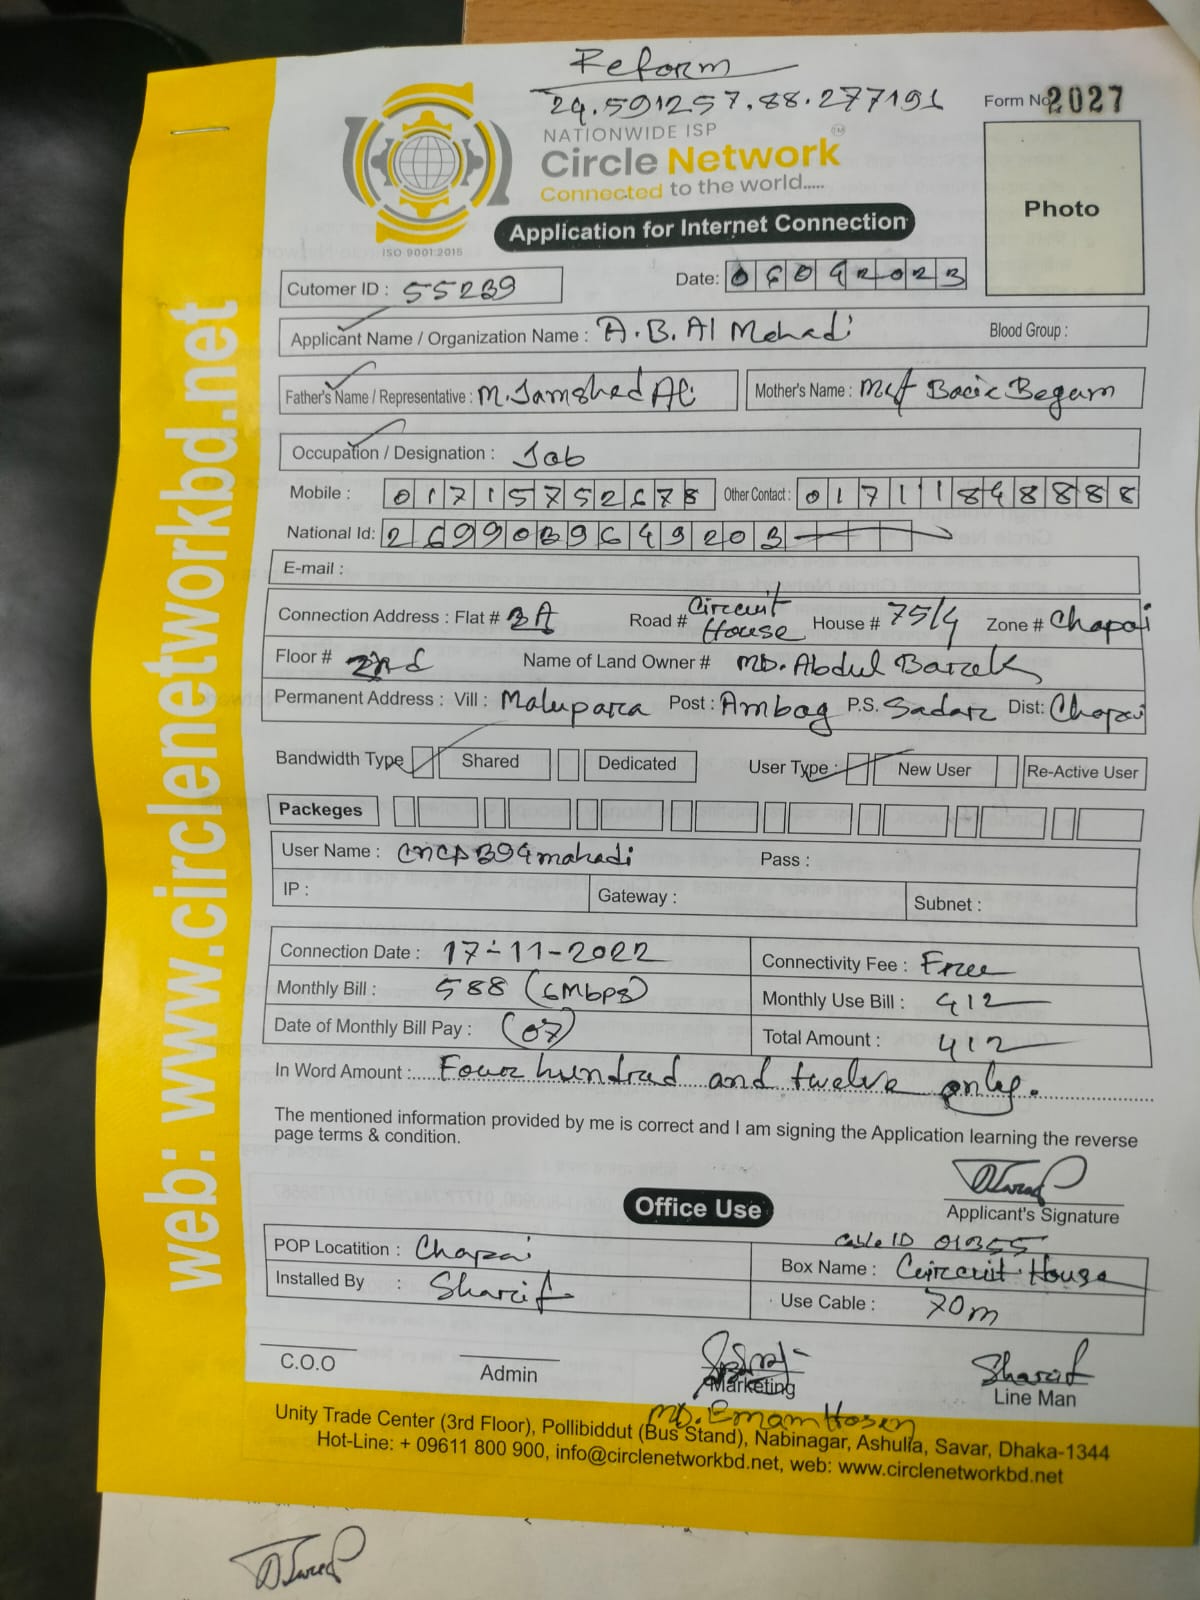 Reform
24.591257,88.277191
Form No 2027
NATIONWIDE ISP
Circle Network TM
Connected to the world.....
ISO 9001:2015
Application for Internet Connection
Photo
Cutomer ID : 55239
Date: 06042023
Applicant Name / Organization Name : A.B. Al Mehadi
Blood Group :
Father's Name / Representative : M. Jamshed Ali
Mother's Name : Mst Begum
Occupation / Designation : Job
Mobile : 01715752678
Other Contact : 01711848888
National Id: 2699039649203
E-mail :
Connection Address : Flat # 3A Road # Circuit House House # 75/4 Zone # Chapai
Floor # 2nd Name of Land Owner # MD. Abdul Barek
Permanent Address : Vill : Malupara Post : Ambag P.S. Sadar Dist: Chapai
Bandwidth Type Shared Dedicated User Type : New User Re-Active User
Packeges
User Name : CNCP394mahadi Pass :
IP : Gateway : Subnet :
Connection Date : 17-11-2022
Connectivity Fee : Free
Monthly Bill : 588 (6Mbps)
Monthly Use Bill : 412
Date of Monthly Bill Pay : (07)
Total Amount : 412
In Word Amount : Four hundrad and twelve only.
The mentioned information provided by me is correct and I am signing the Application learning the reverse
page terms & condition.
Applicant's Signature
Office Use
Cable ID 01355
POP Locatition : Chapai
Box Name : Circuit House
Installed By : Sharif
Use Cable : 70m
C.O.O
Admin
Marketing
MD. Emam Hosen
Sharif
Line Man
Unity Trade Center (3rd Floor), Pollibiddut (Bus Stand), Nabinagar, Ashulia, Savar, Dhaka-1344
Hot-Line: + 09611 800 900, info@circlenetworkbd.net, web: www.circlenetworkbd.net
web: www.circlenetworkbd.net